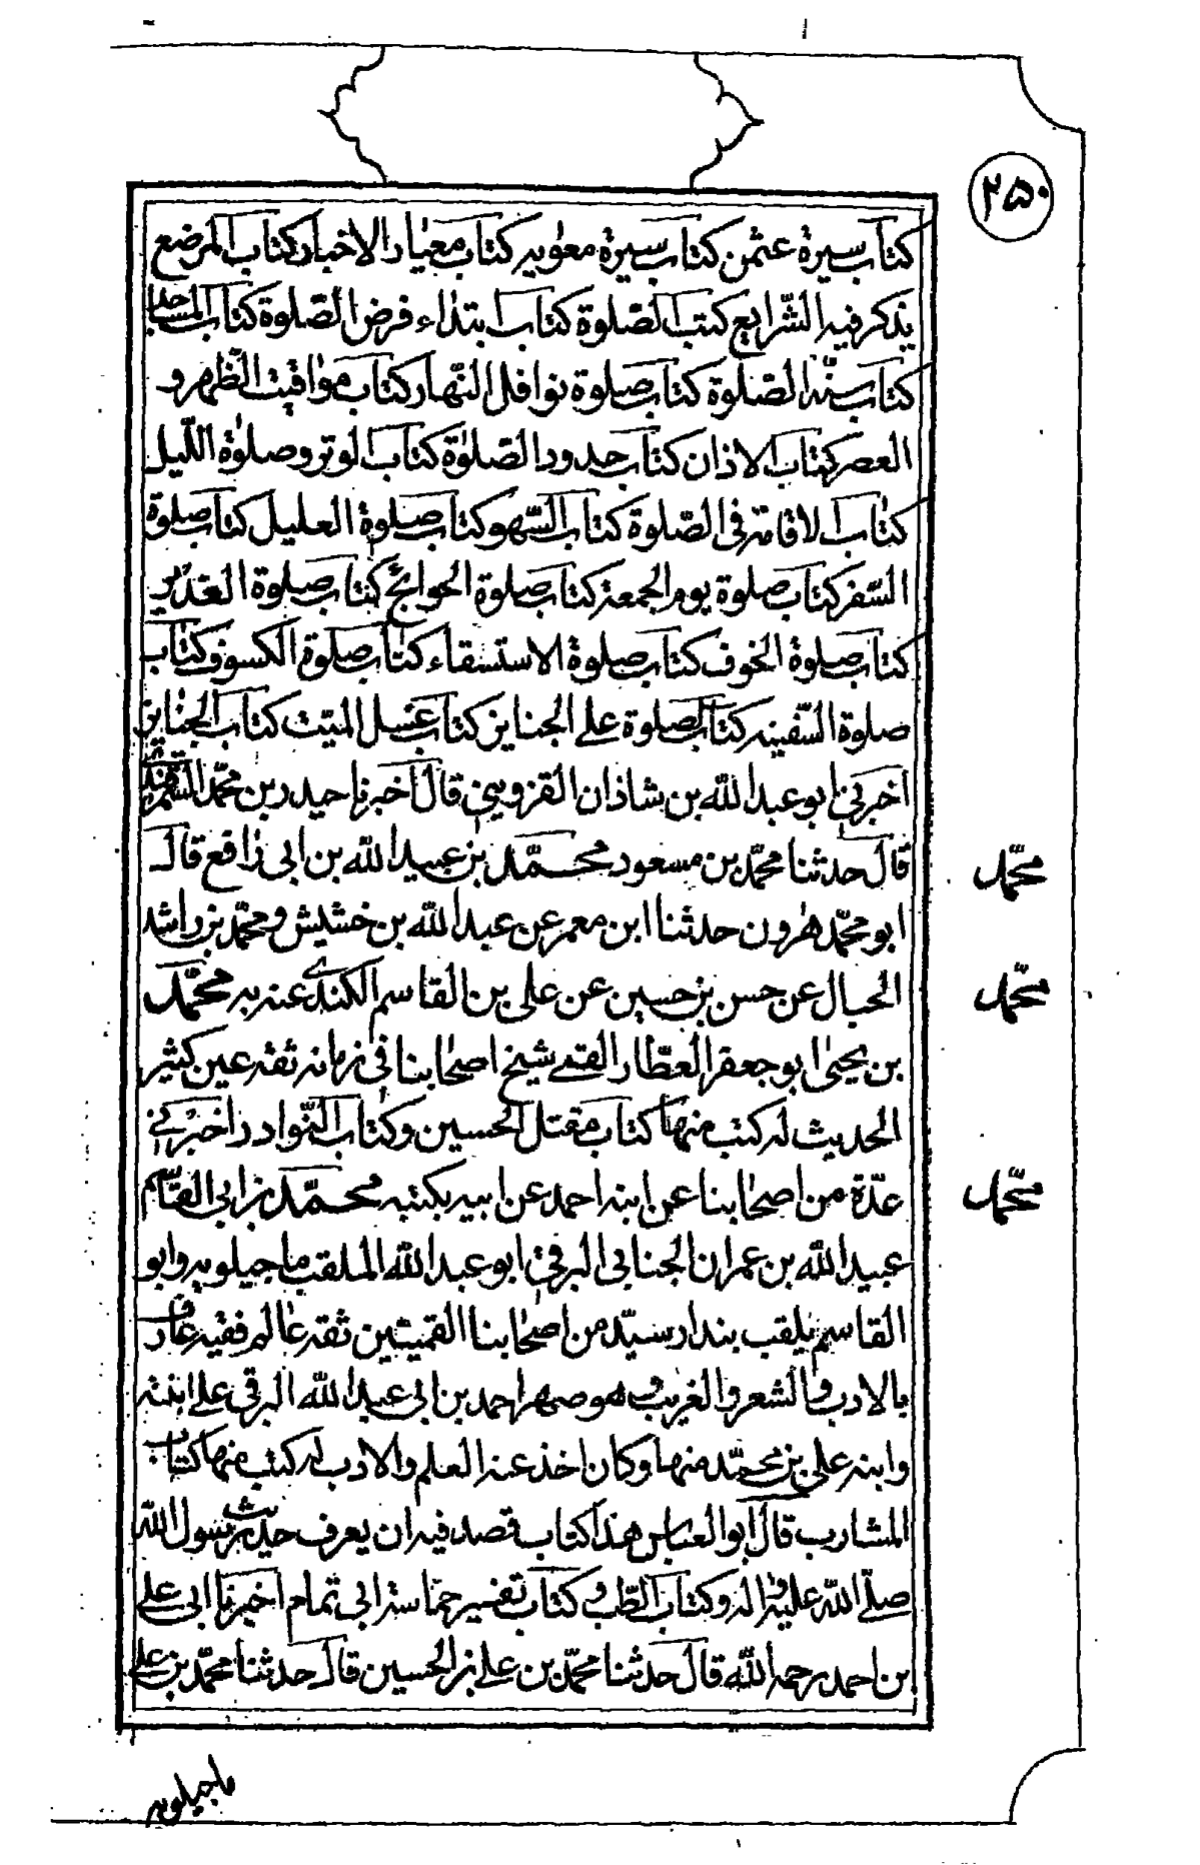 ۲۵۰
كتاب سيرة عثمن كتاب سيرة معويه كتاب معيار الاخبار كتاب الموضع
يذكر فيه الشّرايع كتب الصّلوة كتاب ابتداء فرض الصّلوة كتاب المساجد
كتاب سنّة الصّلوة كتاب صلوة نوافل النّهار كتاب مواقيت الظّهر و
العصر كتاب الاذان كتاب حدود الصّلوة كتاب الوتر وصلوة اللّيل
كتاب الاقامة فى الصّلوة كتاب السّهو كتاب صلوة العليل كتاب صلوة
السّفر كتاب صلوة يوم الجمعة كتاب صلوة الحوائج كتاب صلوة الغدير
كتاب صلوة الخوف كتاب صلوة الاستسقاء كتاب صلوة الكسوف وكتاب
صلوة السّفينه كتاب الصلوة على الجنايز كتاب غسل الميّت كتاب الجنايز
اخبرنى ابو عبد الله بن شاذان القزوينى قال اخبرنا حيدر بن محمّد السّمرقندى
قال حدثنا محمّد بن مسعود محمّد بن عبيد الله بن ابى رافع قال
ابو محمّد هرون حدثنا ابن معمر عن عبد الله بن خشيش ومحمّد بن راشد
الحبال عن حسن بن حسين عن على بن القاسم الكندى عنه به محمّد
بن يحيى ابو جعفر العطّار القمى شيخ اصحابنا فى زمانه ثقه عين كثير
الحديث له كتب منها كتاب مقتل الحسين وكتاب النّوادر اخبرنى
عدّة من اصحابنا عن ابنه احمد عن ابيه بكتبه محمّد بن ابى القاسم
عبيد الله بن عمران الجنابى البرقى ابو عبد الله الملقب ماجيلويه وابو
القاسم يلقب بندار سيّد من اصحابنا القميّين ثقه عالم فقيه عارف
بالادب والشعر والغريب وهو صهر احمد بن ابى عبد الله البرقى على ابنته
وابنه على بن محمّد منها وكان اخذ عنه العلم والادب له كتب منها كتاب
المشارب قال ابو العباس هذا كتاب قصد فيه ان يعرف حديث رسول الله
صلّى الله عليه واله وكتاب الطّب وكتاب تفسير حماسة ابى تمام اخبرنا ابى على
بن احمد رحمه الله قال حدثنا محمّد بن على بن الحسين قال حدثنا محمّد بن على
محمّد
محمّد
محمّد
ماجيلويه